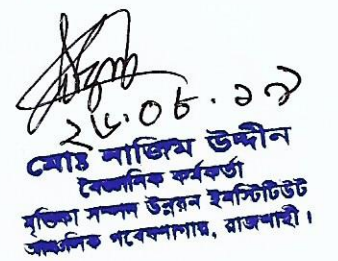 মোঃ নাজিম উদ্দীন
বৈজ্ঞানিক কর্মকর্তা
মৃত্তিকা সম্পদ উন্নয়ন ইনস্টিটিউট
আঞ্চলিক গবেষণাগার, রাজশাহী।